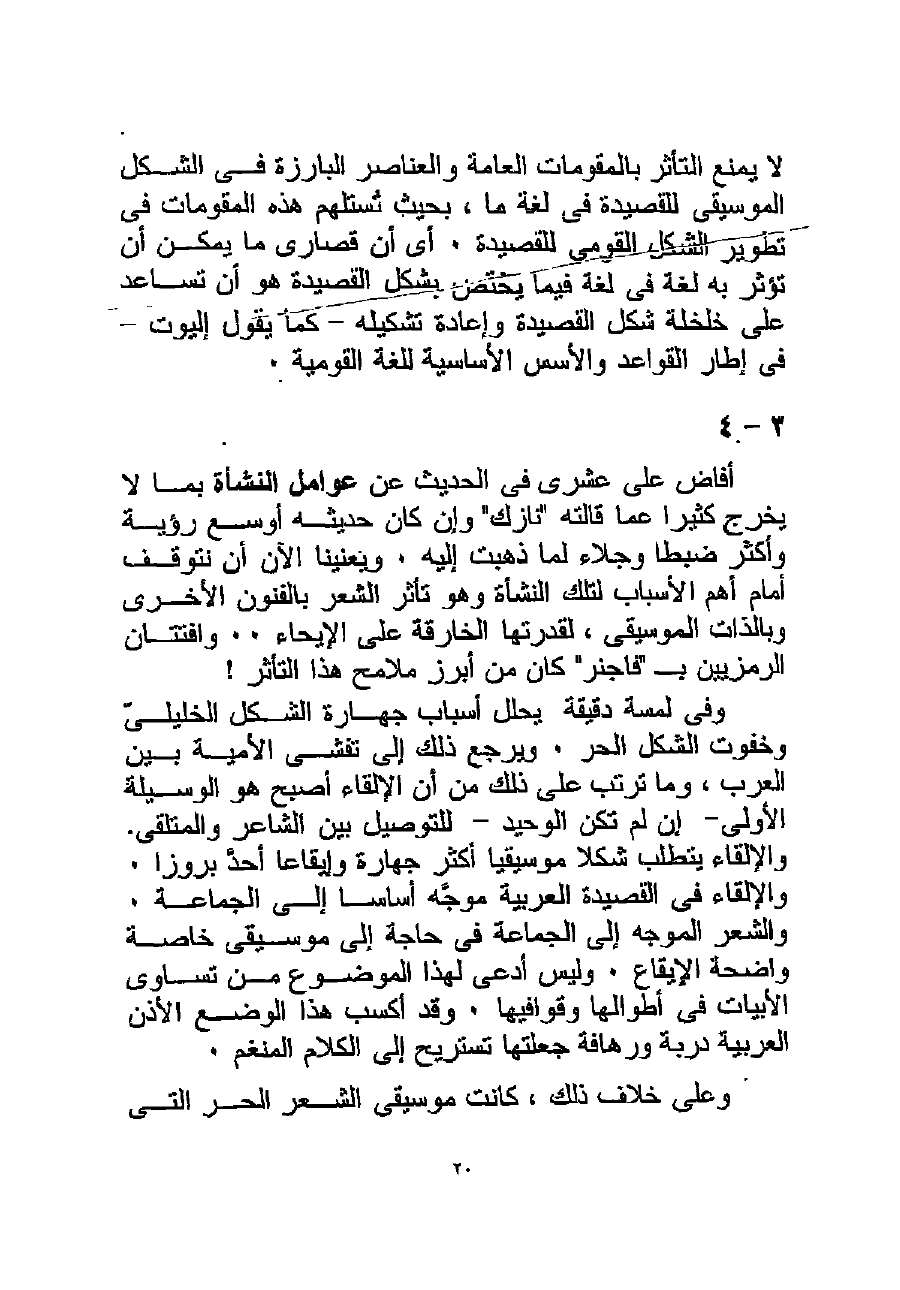 لا يمنع التأثر بالمقومات العامة والعناصر البارزة فى الشكل
الموسيقى للقصيدة فى لغة ما ، بحيث تُستلهم هذه المقومات فى
تطوير الشكل القومي للقصيدة ٠ أى أن قصارى ما يمكن أن
تؤثر به لغة فى لغة فيما يختص بشكل القصيدة هو أن تساعد
على خلخلة شكل القصيدة وإعادة تشكيله – كما يقول إليوت –
فى إطار القواعد والأسس الأساسية للغة القومية ٠
٣ – ٤
أفاض على عشرى فى الحديث عن عوامل النشأة بما لا
يخرج كثيرا عما قالته "نازك" وإن كان حديثه أوسع رؤية
وأكثر ضبطا وجلاء لما ذهبت إليه ٠ ويعنينا الآن أن نتوقف
أمام أهم الأسباب لتلك النشأة وهو تأثر الشعر بالفنون الأخرى
وبالذات الموسيقى ، لقدرتها الخارقة على الإيحاء ٠٠ وافتتان
الرمزيين بـ "فاجنر" كان من أبرز ملامح هذا التأثر !
وفى لمسة دقيقة يحلل أسباب جهارة الشكل الخليلىّ
وخفوت الشكل الحر ٠ ويرجع ذلك إلى تفشى الأمية بين
العرب ، وما ترتب على ذلك من أن الإلقاء أصبح هو الوسيلة
الأولى– إن لم تكن الوحيد – للتوصيل بين الشاعر والمتلقى.
والإلقاء يتطلب شكلا موسيقيا أكثر جهارة وإيقاعا أحدَّ بروزا ٠
والإلقاء فى القصيدة العربية موجَّه أساسا إلى الجماعة ٠
والشعر الموجه إلى الجماعة فى حاجة إلى موسيقى خاصة
واضحة الإيقاع ٠ وليس أدعى لهذا الموضوع من تساوى
الأبيات فى أطوالها وقوافيها ٠ وقد أكسب هذا الوضع الأذن
العربية دربة ورهافة جعلتها تستريح إلى الكلام المنغم ٠
وعلى خلاف ذلك ، كانت موسيقى الشعر الحر التى
٢٠